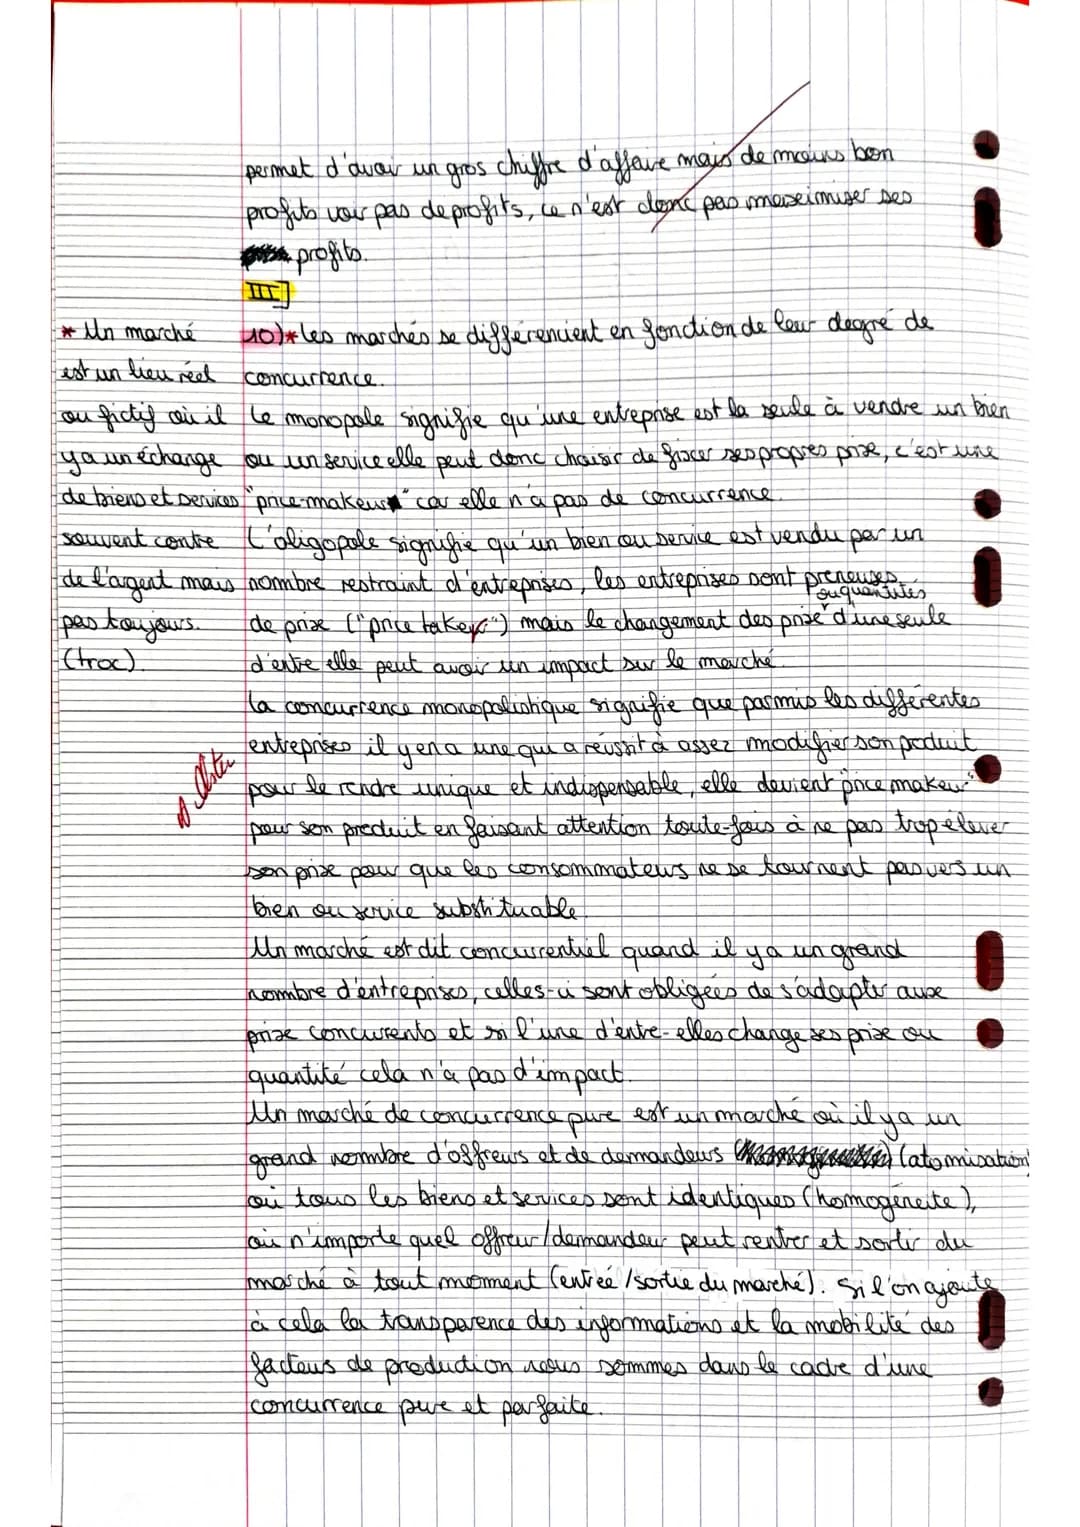 permet d'avoir un gros chiffre d'affaire mais de moins bon
profits voir pas de profits, ce n'est donc pas maximiser ses
profits.
III]
10)* Les marchés se différencient en fonction de leur degré de
concurrence.
Le monopole signifie qu'une entreprise est la seule à vendre un bien
ou un service elle peut donc choisir de fixer ses propres prix, c'est une
"price-makeur" car elle n'a pas de concurrence.
L'oligopole signifie qu'un bien ou service est vendu par un
nombre restraint d'entreprises, les entreprises sont preneuses
de prix ("price taker") mais le changement des prix ou quantités d'une seule
d'entre elle peut avoir un impact sur le marché.
La concurrence monopolistique signifie que parmis les différentes
entreprises il y en a une qui a réussit à assez modifier son produit
pour le rendre unique et indispensable, elle devient "price makeur"
pour son produit en faisant attention toute-fois à ne pas trop élever
son prix pour que les consommateurs ne se tournent pas vers un
bien ou service substituable.
Un marché est dit concurrentiel quand il y a un grand
nombre d'entreprises, celles-ci sont obligées de s'adapter aux
prix concurrents et si l'une d'entre-elles change ses prix ou
quantité cela n'a pas d'impact.
Un marché de concurrence pure est un marché où il y a un
grand nombre d'offreurs et de demandeurs (atomisation)
où tous les biens et services sont identiques (homogéneite),
où n'importe quel offreur/demandeur peut rentrer et sortir du
marché à tout moment (entreé/sortie du marché). Si l'on ajoute
à cela la transparence des informations et la mobilité des
facteurs de production nous sommes dans le cadre d'une
concurrence pure et parfaite.
* Un marché
est un lieu réel
ou fictif où il
y a un échange
de biens et services
souvent contre
de l'argent mais
pas toujours.
(troc).